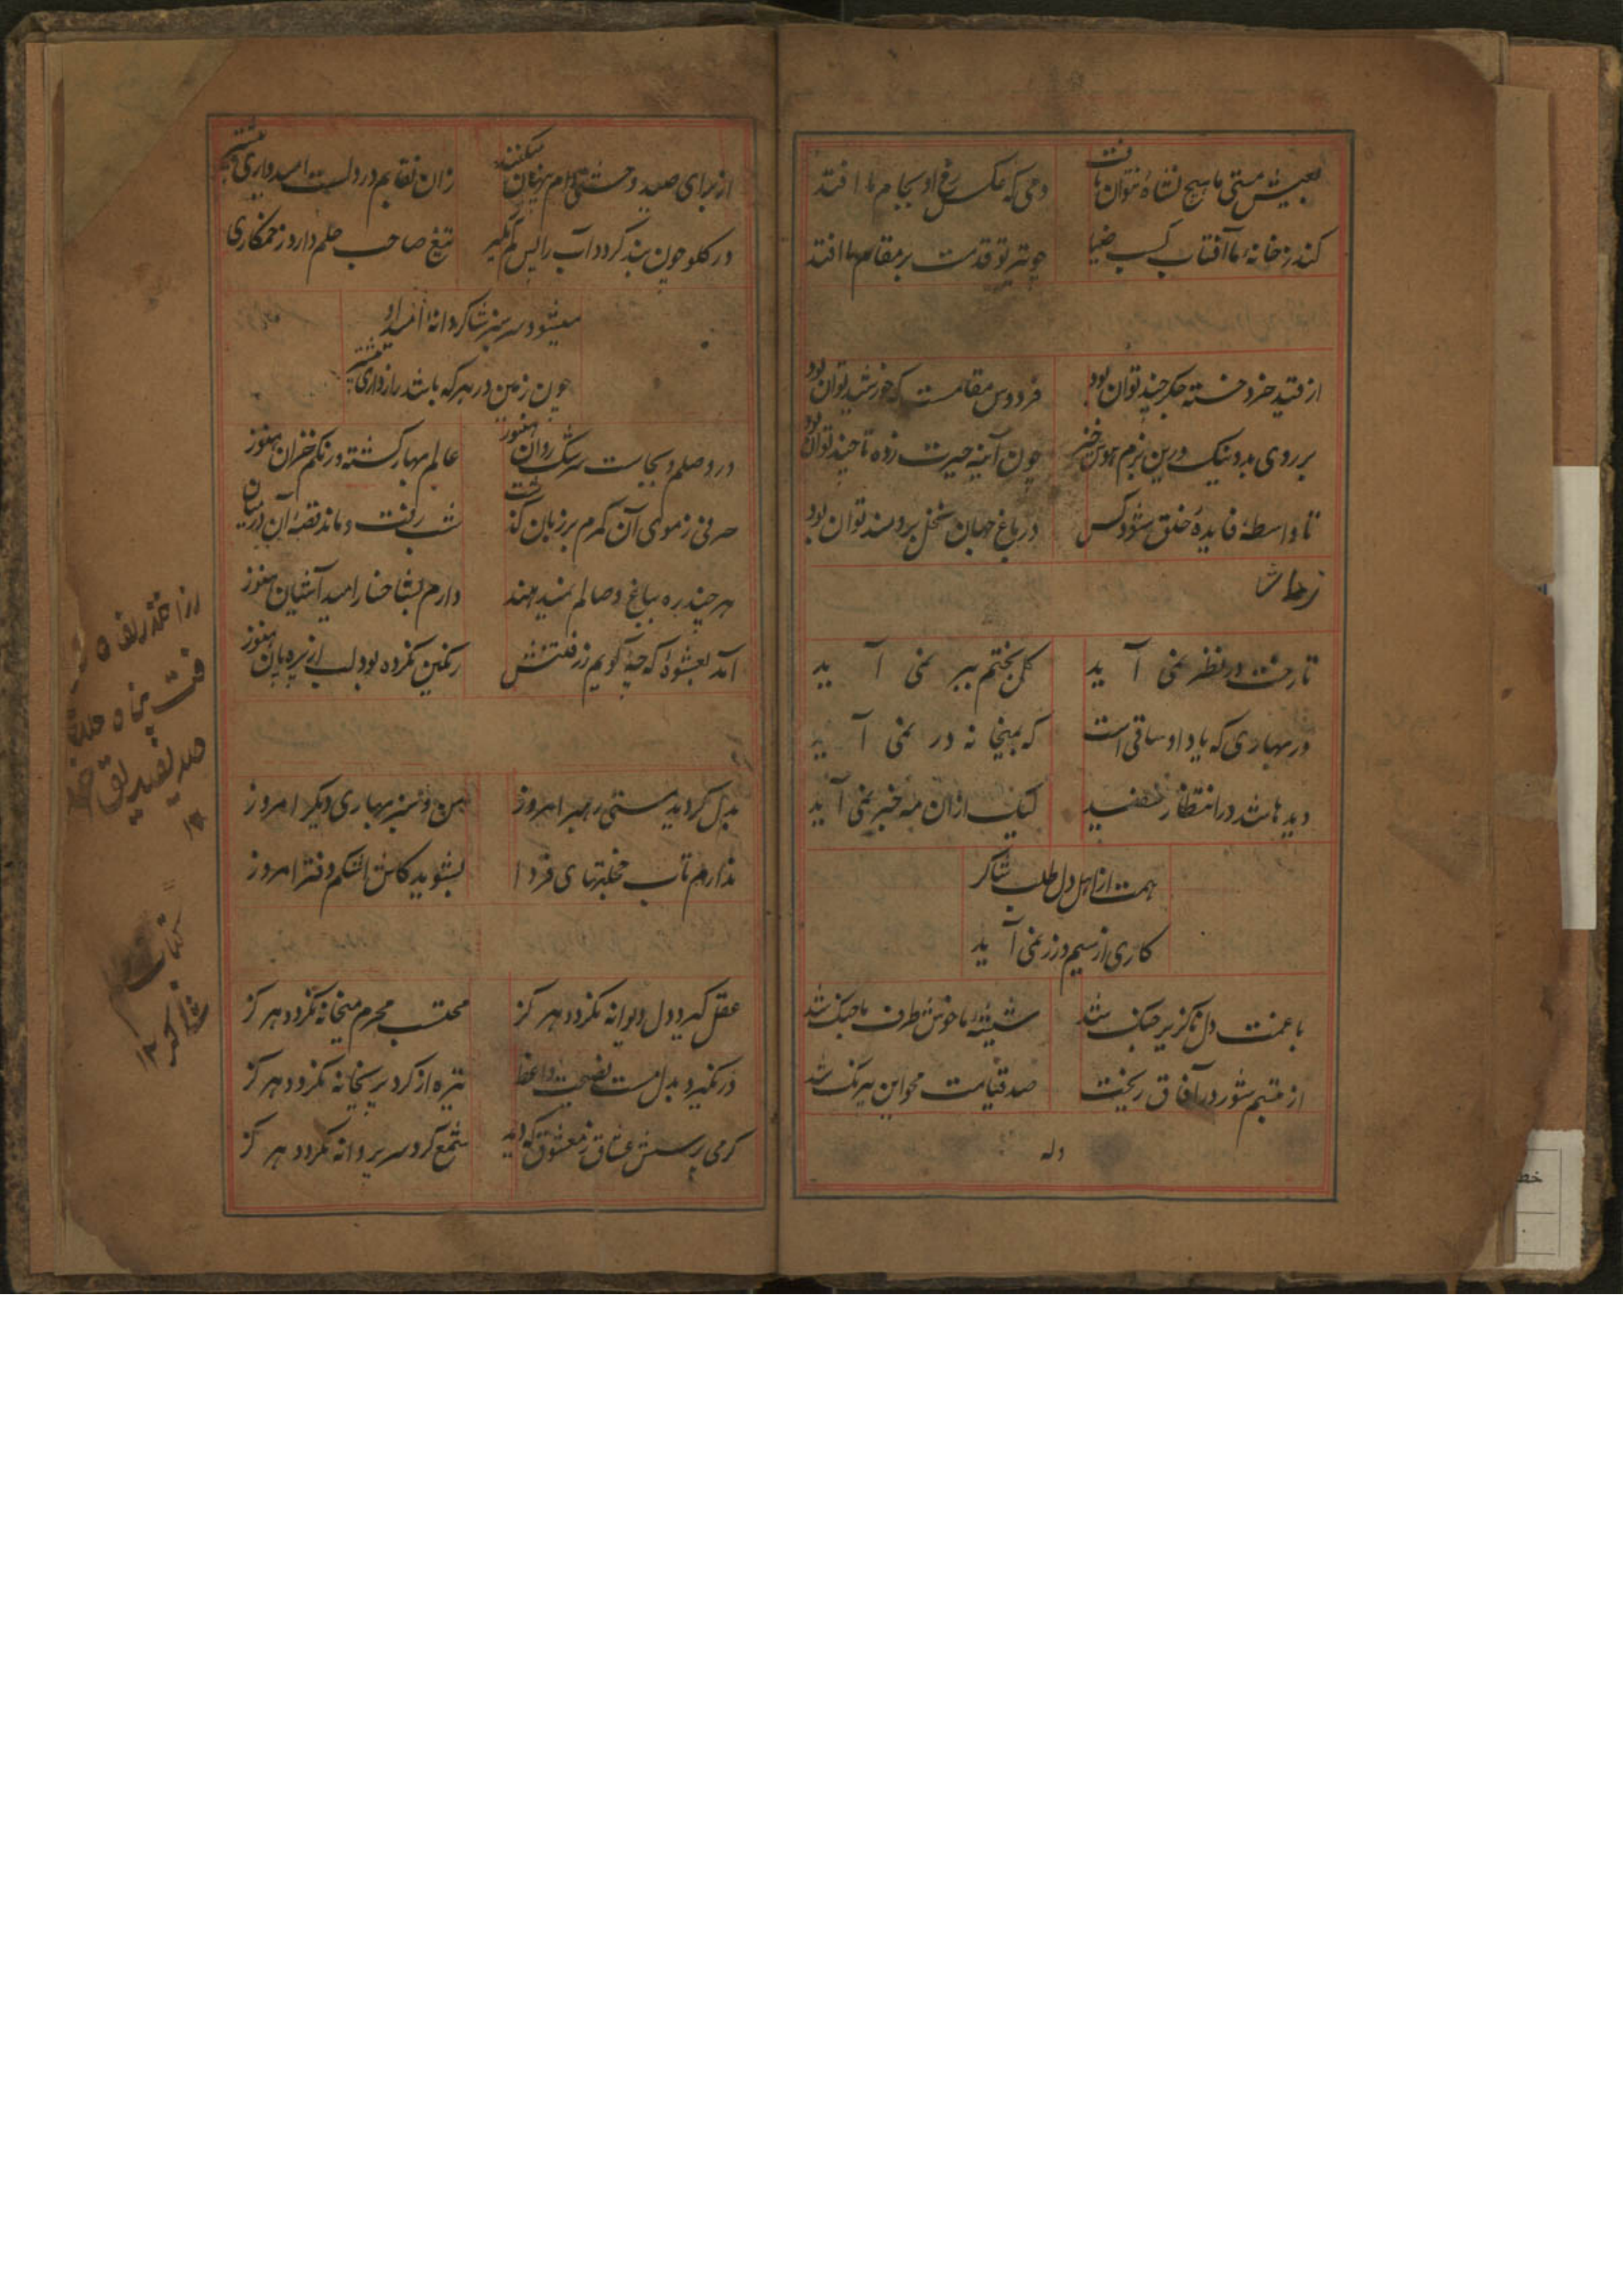 بعیش مستی ما هیچ نشاهٔ نتوان یافت
دمی که عکس رخ او بجام ما افتد
کند ز خانهٔ ما آفتاب کسب ضیا
چو پرتو قدمت بر مقام ما افتد
از قید خرد خسته جگر چند توان بود
فردوس مقامست که خورسند توان بود
بر روی بد و نیک درین بزم هوس خیز
چون آینه حیرت زده تا چند توان بود
تا واسطهٔ فایدهٔ خلق شود کس
در باغ جهان نخل برومند توان بود
تا رخت در نظر نمی آید
گل بختم ببر نمی آید
در بهاری که یاد او ساقی است
که بمیخانه در نمی آید
دیدها شد در انتظار سفید
لیک ازان مه خبر نمی آید
همت از اهل دل طلب شاکر
کاری از سیم و زر نمی آید
با غمت دل ناگزیر جنگ شد
شیشهٔ ما خوش طرف با سنگ شد
از تبسم شور در آفاق ریخت
صد قیامت محو این نیرنگ شد
وله
از برای صید وحشی دام پنهان میکنند
زان نقابم در دلست امیدواری بیشتر
در گلو چون بند گردد آب را پس کم مگیر
تیغ صاحب حلم دارد زخم کاری
میشود سرسبز شاکر دانهٔ امید او
چون زمین در هر که باشد رازداری بیشتر
در وصلم و بجاست سرشک روان هنوز
عالم بهار گشته و رنگم خزان هنوز
حرفی ز موی آن کمرم بر زبان گذشت
شب رفت و ماند قصهٔ آن در میان
هر چند ره بباغ وصالم نمیدهند
دارم بشاخسار امید آشیان هنوز
آمد بعشوهٔ که چه گویم ز فتنتش
رنگین نکرده بود لب از بره پان هنوز
بدل گردید مستی رهبر امروز
من و سیر بهاری دیگر امروز
ندارم تاب خجلتهای فردا
بشوید کاش اشکم دفتر امروز
عقل گیرد دل دیوانه نگردد هرگز
محتسب محرم میخانه نگردد هرگز
در نگیرد بدل مست نصیحت واعظ
تیره از گرد پریخانه نگردد هرگز
گرمی پرسش عشاق ز معشوق که دید
شمع گرد سر پروانه نگردد هرگز
کتاب
شاکر
۱۲